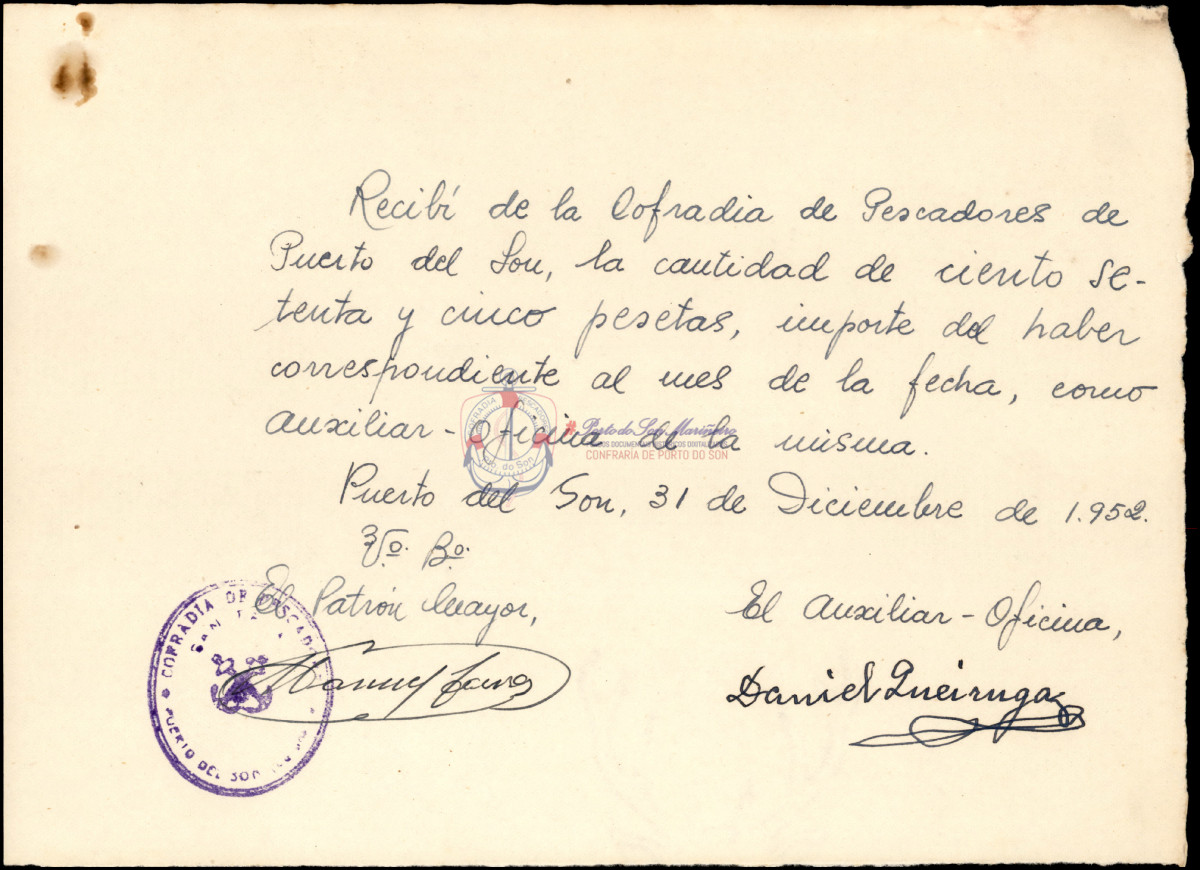 Recibí de la Cofradia de Pescadores de
Puerto del Son, la cantidad de ciento se-
tenta y cinco pesetas, importe del haber
correspondiente al mes de la fecha, como
auxiliar-Oficina de la misma.
Puerto del Son, 31 de Diciembre de 1.952.
Vº. Bº.
El Patrón Mayor,
El Auxiliar-Oficina,
Manuel
Daniel Queiruga
COFRADIA DE PESCADO
SAN
PUERTO DEL SON
COFRADIA PESCADORES
Pto. do Son
Porto do Son Mariñeiro
CONFRARÍA DE PORTO DO SON